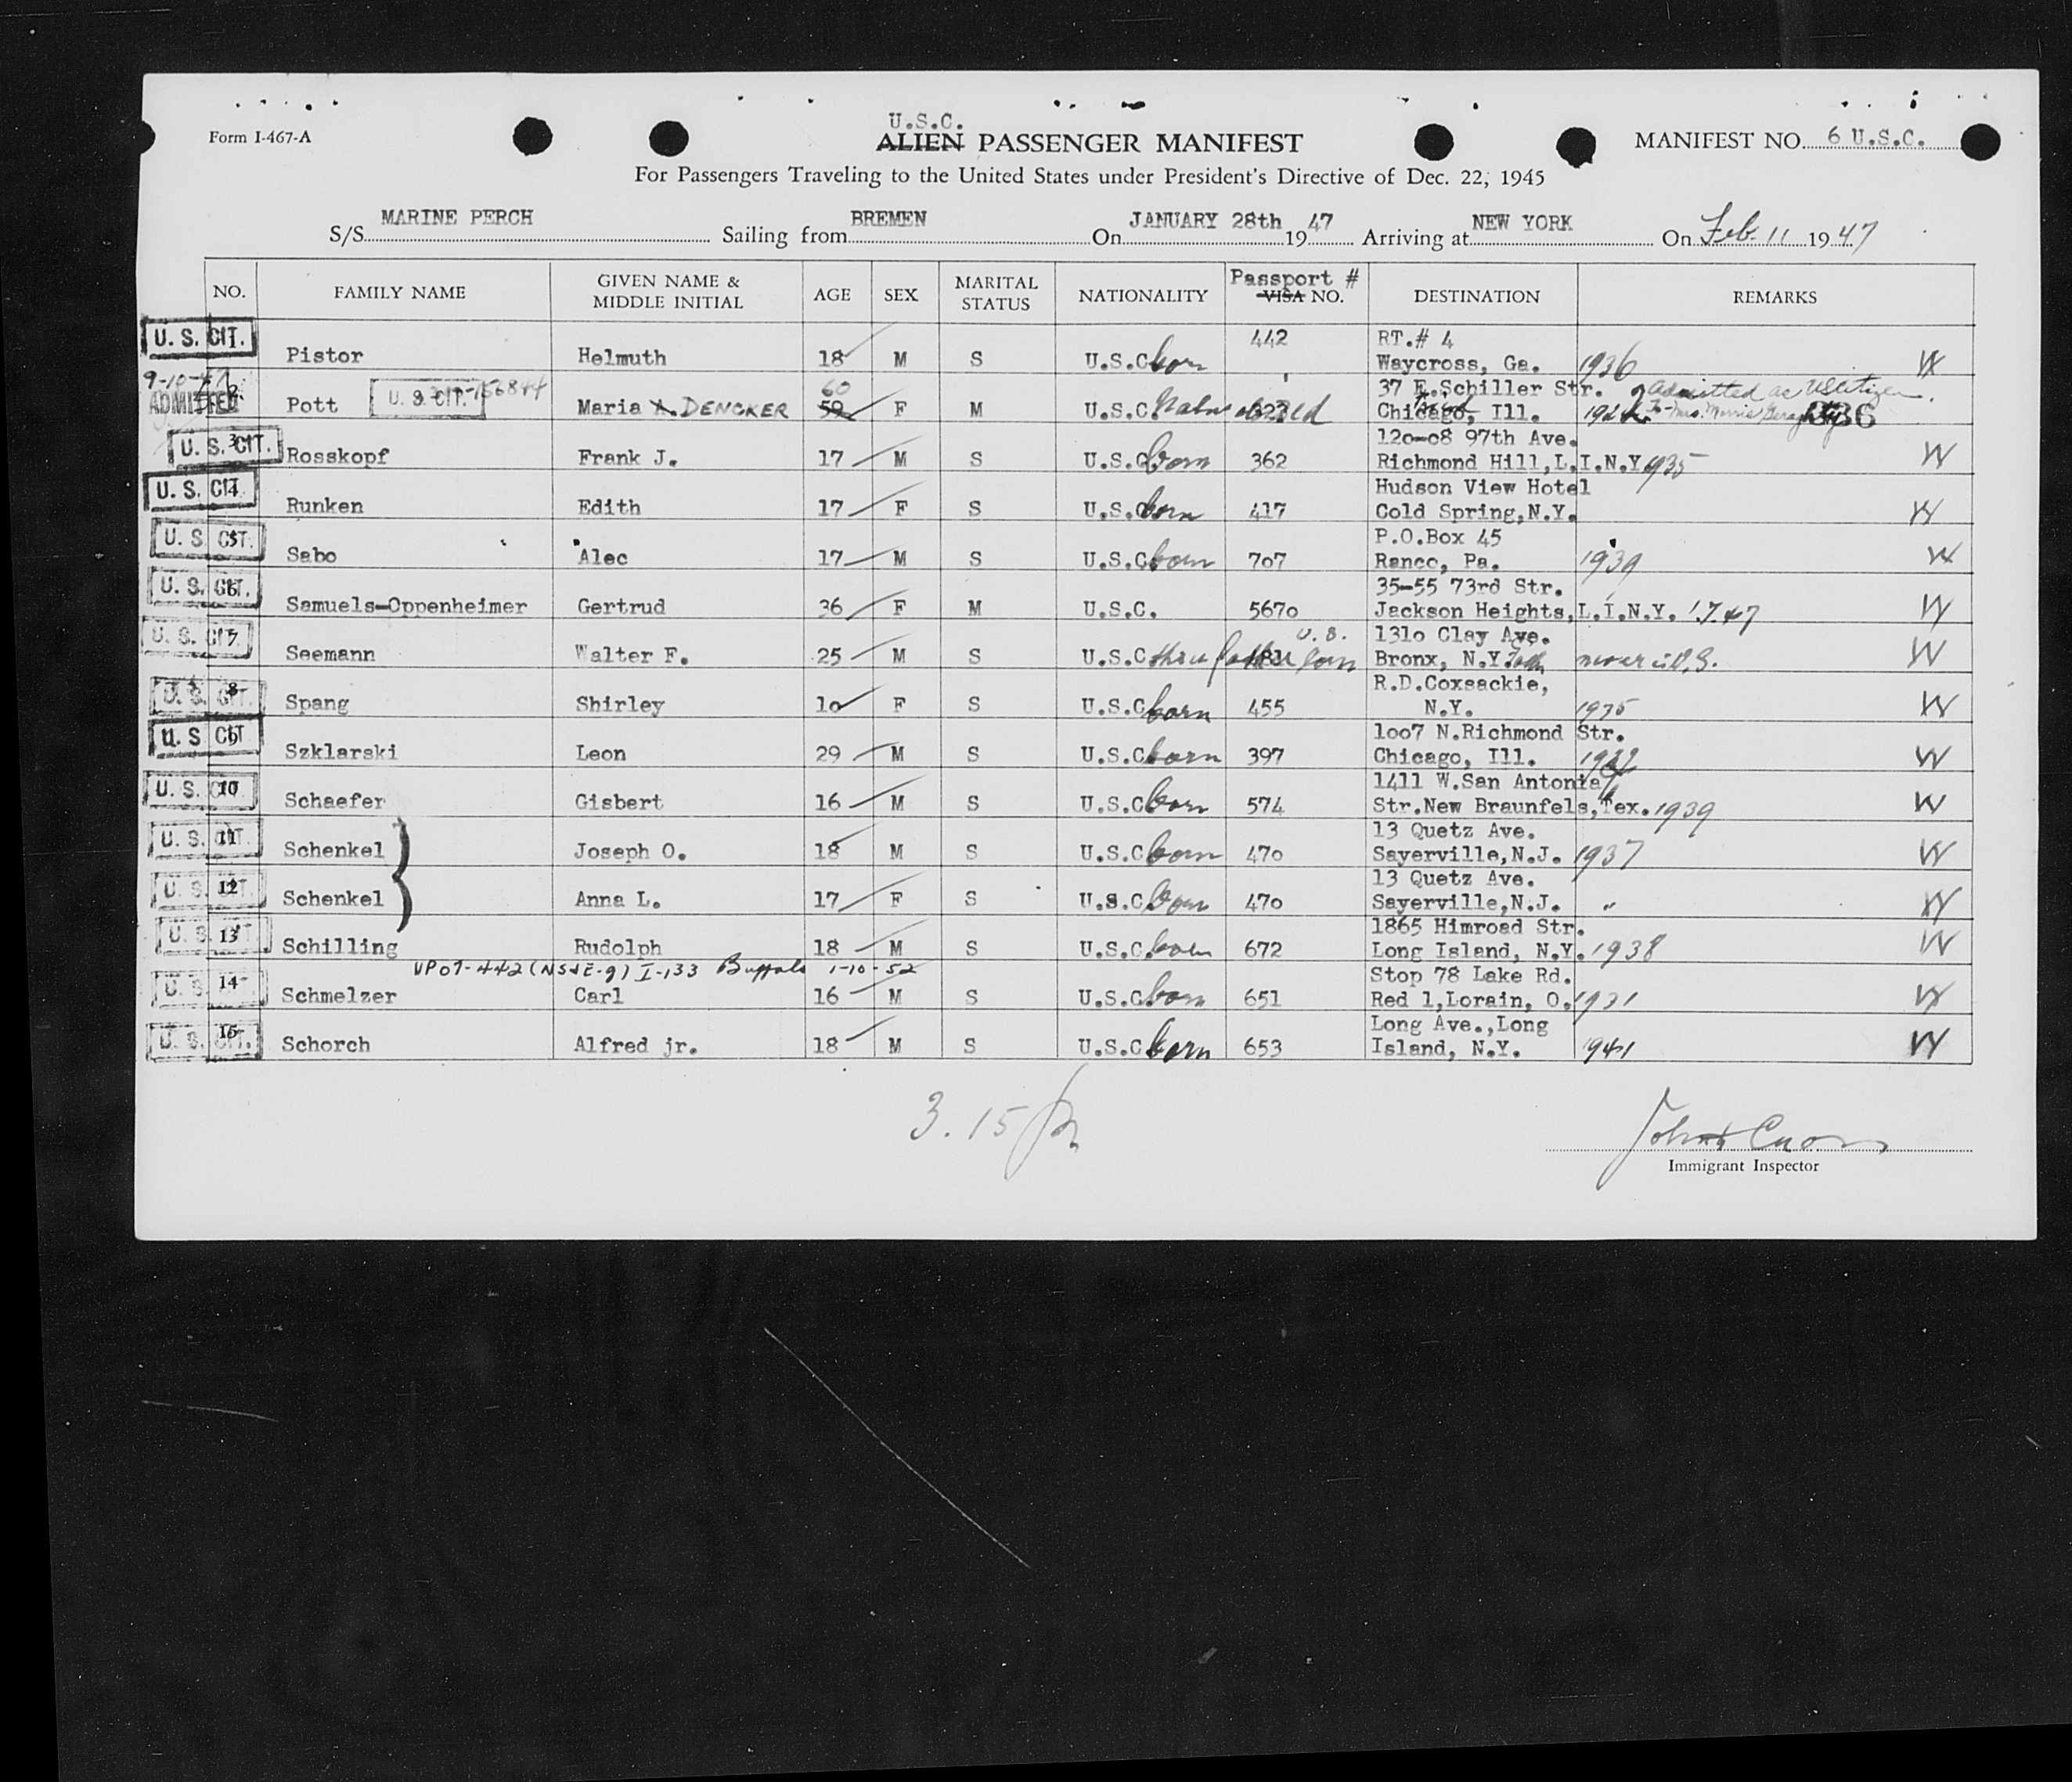 Form I-467-A
U.S.C.
ALIEN PASSENGER MANIFEST
MANIFEST NO. 6 U.S.C.
For Passengers Traveling to the United States under President's Directive of Dec. 22, 1945
S/S MARINE PERCH Sailing from BREMEN On JANUARY 28th 19 47 Arriving at NEW YORK On Feb. 11 19 47
NO. FAMILY NAME GIVEN NAME & MIDDLE INITIAL AGE SEX MARITAL STATUS NATIONALITY Passport # VISA NO. DESTINATION REMARKS
U. S. CIT. 442 RT.# 4
Pistor Helmuth 18 M S U.S.C born Waycross, Ga. 1936 W
9-10-47 60 37 E.Schiller Str. admitted as US citizen.
ADMITTED 2 Pott U. S. CIT. Maria A. DENCKER 59 F M U.S.C 323 Chicago, Ill. 336
U. S. CIT. 3 120-08 97th Ave.
Rosskopf Frank J. 17 M S U.S.C born 362 Richmond Hill,L.I.N.Y. 1935 W
U. S. CIT. 4 Hudson View Hotel
Runken Edith 17 F S U.S.C born 417 Cold Spring,N.Y. W
U. S. CIT. 5 P.O.Box 45
Sabo Alec 17 M S U.S.C born 707 Ranco, Pa. 1939 W
U. S. CIT. 6 35-55 73rd Str.
Samuels-Oppenheimer Gertrud 36 F M U.S.C. 5670 Jackson Heights,L.I.N.Y. W
U. S. CIT. 7 U.S. 1310 Clay Ave.
Seemann Walter F. 25 M S U.S.C thru father born Bronx, N.Y. never in U.S. W
U. S. CIT. 8 R.D.Coxsackie,
Spang Shirley 10 F S U.S.C born 455 N.Y. 1935 W
U. S. CIT. 9 1007 N.Richmond Str.
Szklarski Leon 29 M S U.S.C born 397 Chicago, Ill. W
U. S. CIT. 10 1411 W.San Antonia
Schaefer Gisbert 16 M S U.S.C born 574 Str.New Braunfels,Tex. 1939 W
U. S. CIT. 11 13 Quetz Ave.
Schenkel Joseph O. 18 M S U.S.C born 470 Sayerville,N.J. 1937 W
U. S. CIT. 12 13 Quetz Ave.
Schenkel Anna L. 17 F S U.S.C born 470 Sayerville,N.J. " W
U. S. CIT. 13 1865 Himrod Str.
Schilling Rudolph 18 M S U.S.C. born 672 Long Island, N.Y. 1938 W
VP07-442 (NS&E-g) I-133 Buffalo 1-10-52
U. S. CIT. 14 Stop 78 Lake Rd.
Schmelzer Carl 16 M S U.S.C. born 651 Red 1,Lorain, O. 1931 W
U. S. CIT. 15 Long Ave.,Long
Schorch Alfred jr. 18 M S U.S.C born 653 Island, N.Y. 1941 W
3.15
Immigrant Inspector